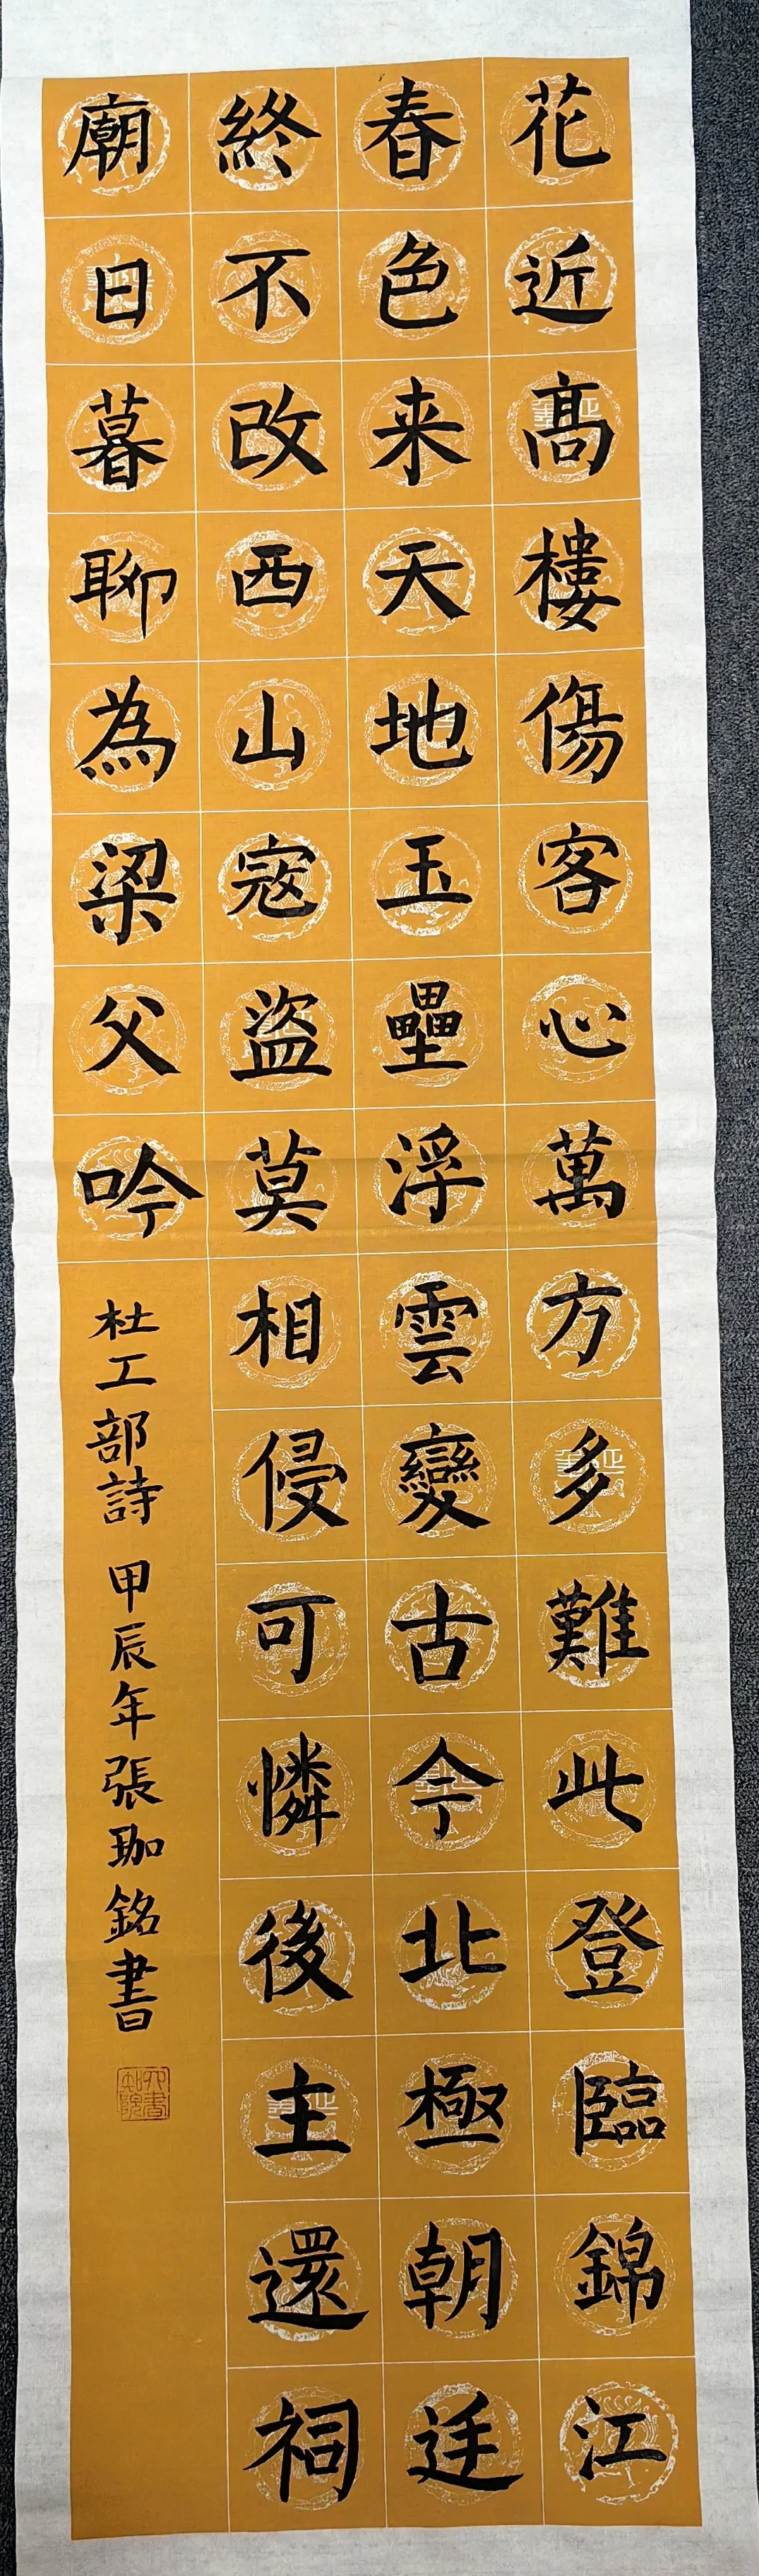 花近高樓傷客心萬方多難此登臨錦江
春色来天地玉壘浮雲變古今北極朝廷
終不改西山寇盜莫相侵可憐後主還祠
廟日暮聊為梁父吟
杜工部詩 甲辰年張珈銘書